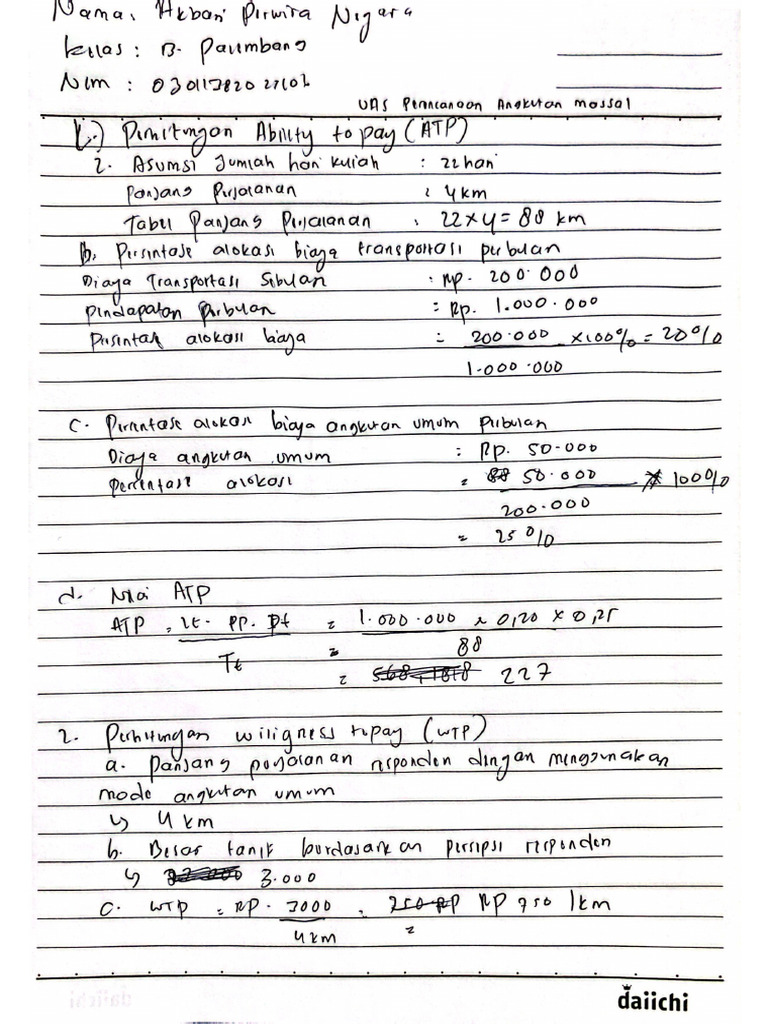 Nama : Akbari Perwira Negara
Kelas : B. Palembang
Nim :
UAS Perencanaan Angkutan massal
1.) Perhitungan Ability to pay (ATP)
2. Asumsi Jumlah hari kuliah : 22 hari
Panjang Perjalanan : 4 km
Tabel Panjang Perjalanan : 22 x 4 = 88 km
b. Persentase alokasi biaya transportasi perbulan
Biaya Transportasi Sebulan : Rp. 200.000
Pendapatan Perbulan = Rp. 1.000.000
Persentase alokasi biaya = 200.000 x 100% = 20%
1.000.000
c. Persentase alokasi biaya angkutan umum Perbulan
Biaya angkutan umum : Rp. 50.000
Persentase alokasi = 50.000 x 100%
200.000
= 25%
d. Nilai ATP
ATP = It. PP. Pt = 1.000.000 x 0,20 x 0,25
Tt = 88
= 227
2. Perhitungan willigness to pay (WTP)
a. Panjang perjalanan responden dengan menggunakan
mode angkutan umum
↳ 4 km
b. Besar tarif berdasarkan persepsi responden
↳ 3.000
c. WTP = RP. 3000 = RP 750 /km
4 km =
daiichi